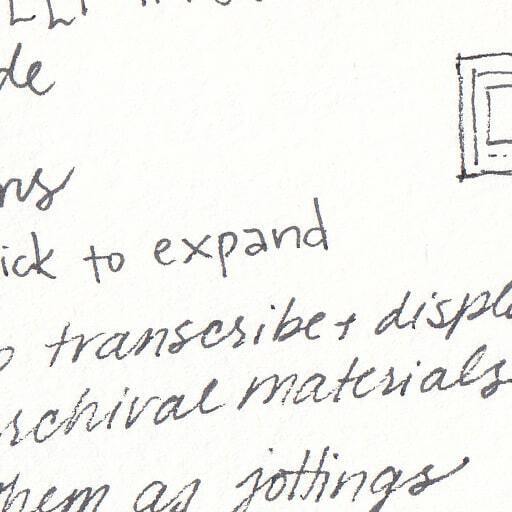 de
ns
ick to expand
transcribe + displ
rchival materials
hem as jottings